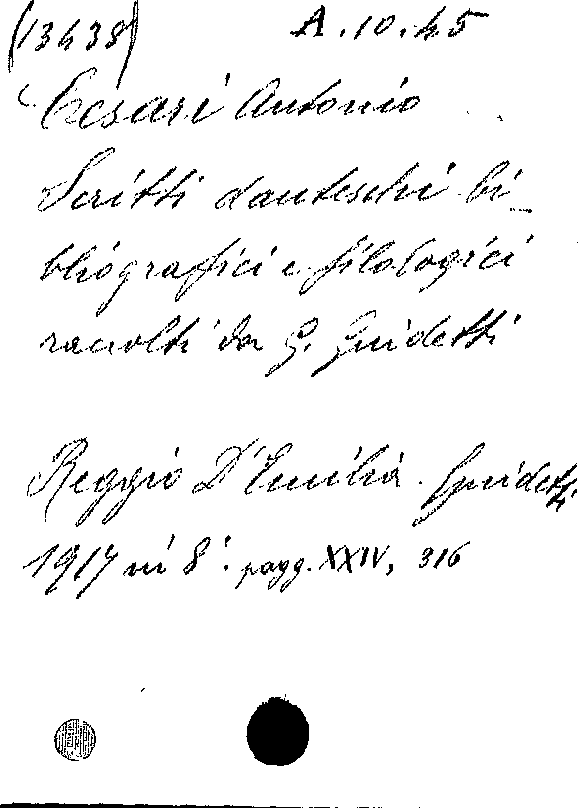 (13438) A.10.45
Cesari Antonio
Scritti danteschi bi-
bliografici e filologici
raccolti da G. Guidetti
Reggio D'Emilia. Guidetti
1917 in 8°. pagg. XXIV, 316